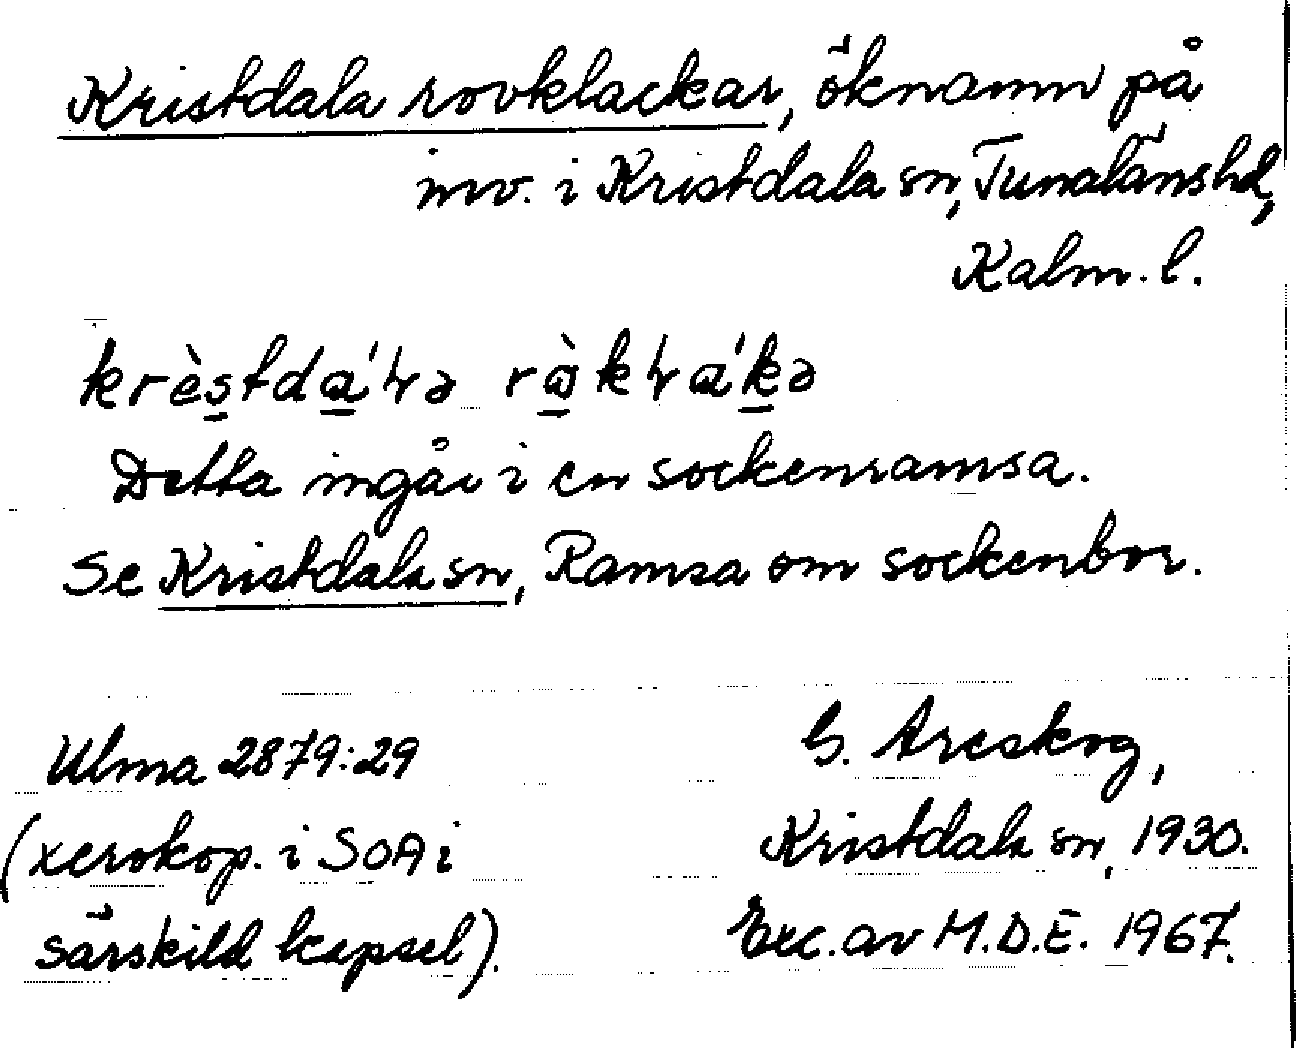 Kristdala rovklackar, öknamn på
inv. i Kristdala sn, Tunaläns hd,
Kalm. l.
Detta ingår i en sockenramsa.
Se Kristdala sn, Ramsa om sockenbor.
Ulma 2879:29
(xerokop. i SOA i
särskild kapsel).
G. Areskog,
Kristdala sn, 1930.
Exc. av M.D.E. 1967.